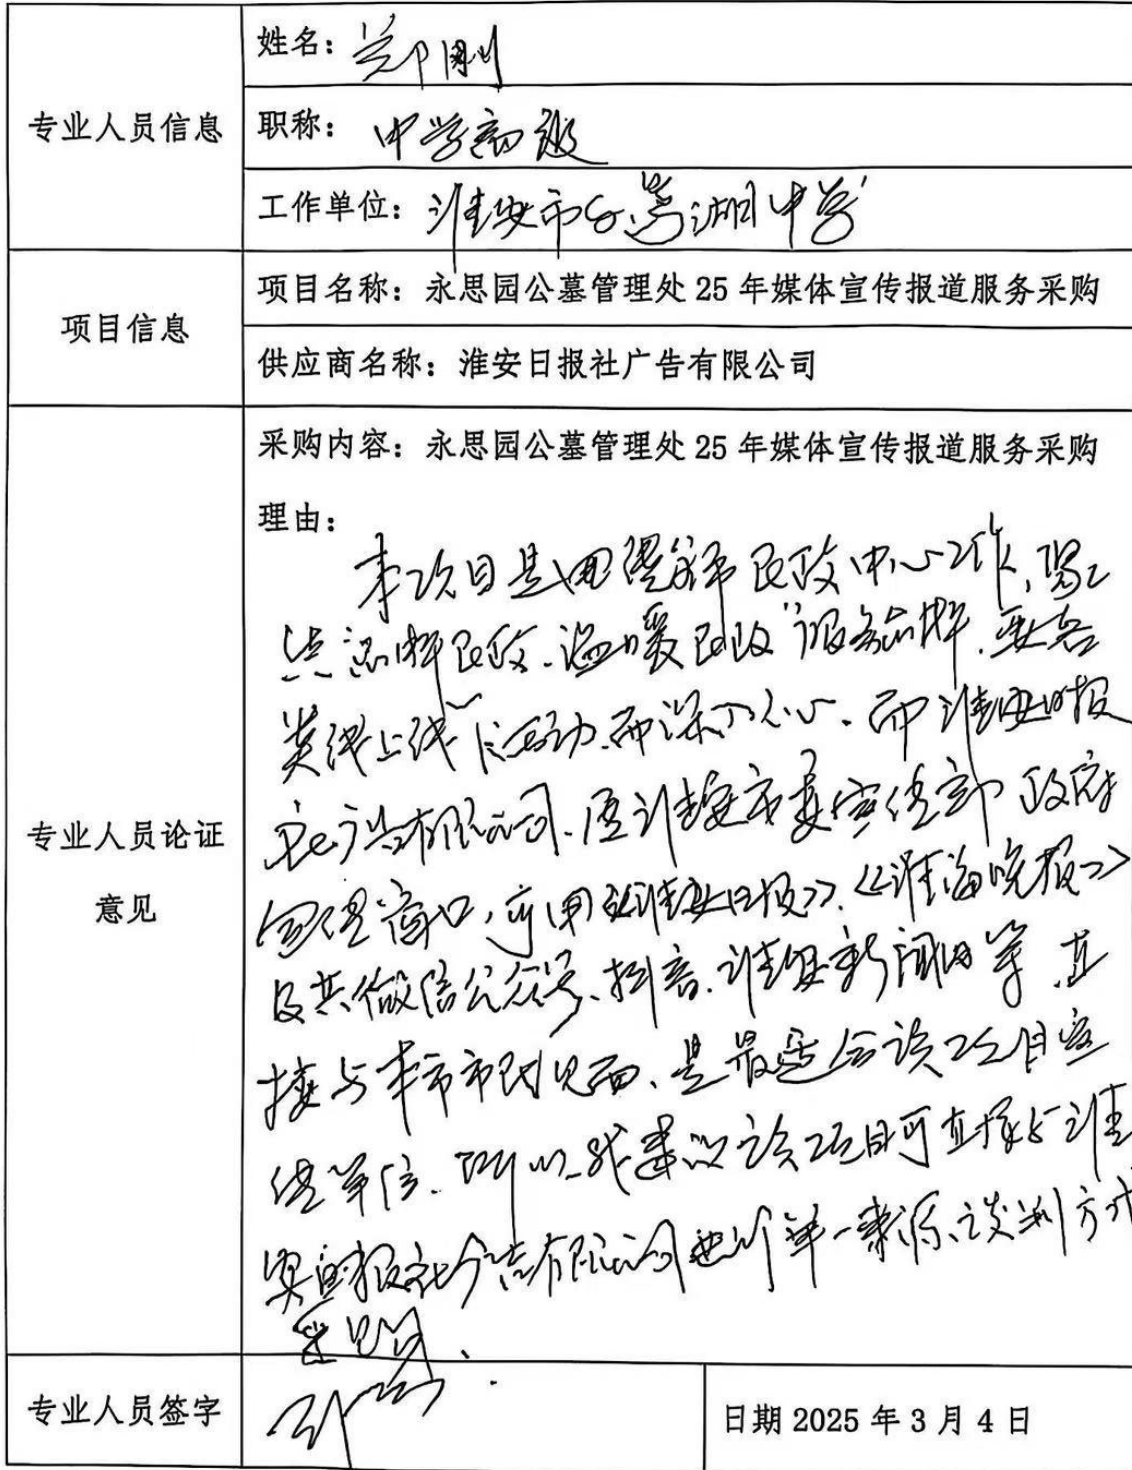 专业人员信息
姓名：郑刚
职称：中学高级
工作单位：淮安市 湖中学
项目信息
项目名称：永思园公墓管理处 25 年媒体宣传报道服务采购
供应商名称：淮安日报社广告有限公司
专业人员论证
意见
采购内容：永思园公墓管理处 25 年媒体宣传报道服务采购
理由：
本项目是 市民政中心工作，
民政、温暖民政”服务品牌，要各
类线上线下活动、而深入人心。而淮安日报
社广告有限公司、原淮安市委宣传部 政府
宣传窗口，可用《淮安日报》、《淮海晚报》
及其微信公众号、抖音、淮安新闻网等 直
接与本市市民见面、是最适合该项目宣
传单位、所以我建议该项目可直接与淮
安日报社广告有限公司进行单一来源谈判方式
专业人员签字
日期 2025 年 3 月 4 日